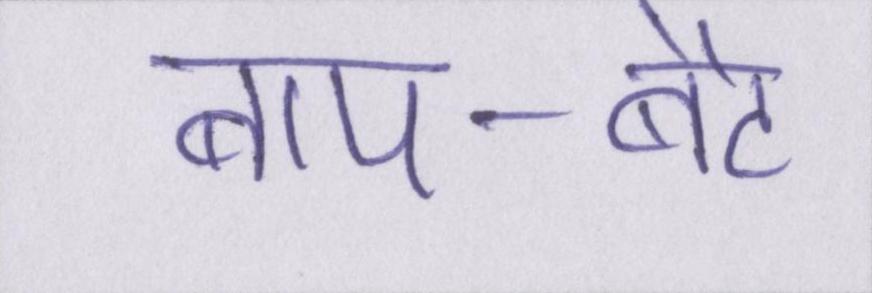 बाप-बैट